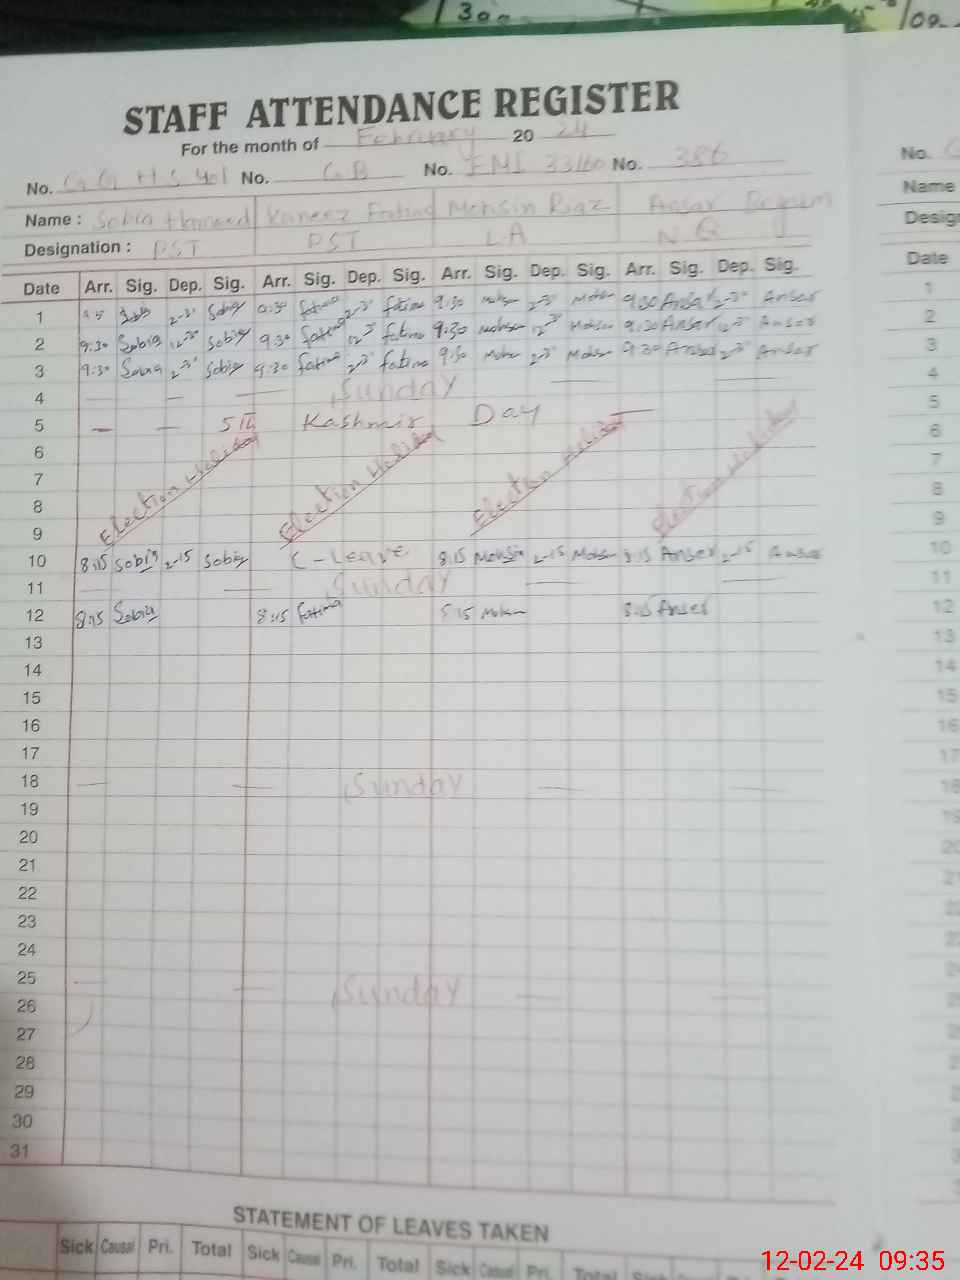 300
STAFF ATTENDANCE REGISTER
For the month of February 20 24
No. G G H S 401 No. G B No. EMI 33160 No. 386
Name : Sobia Hameed Kaneez Fatima Mohsin Riaz Ansar Begum
Designation : PST PST LA N Q
Date Arr. Sig. Dep. Sig. Arr. Sig. Dep. Sig. Arr. Sig. Dep. Sig. Arr. Sig. Dep. Sig.
1 Sobia 9:30 Fatima Fatima 9:30 Mohsin Mohsin 9:30 Ansar Ansar
2 9:30 Sobia Sobia 9:30 Fatima Fatima 9:30 Mohsin Mohsin 9:30 Ansar Ansar
3 9:30 Sobia Sobia 9:30 Fatima Fatima 9:30 Mohsin Mohsin 9:30 Ansar Ansar
4 Sunday
5 5th Kashmir Day
6
7
8 Election Holiday Election Holiday Election Holiday Election Holiday
9
10 8:15 Sobia 2-15 Sobia C-Leave 8:15 Mohsin 2-15 Mohsin 8:15 Ansar 2-15 Ansar
11 Sunday
12 8:15 Sobia 8:15 Fatima 8:15 Mohsin 8:15 Ansar
13
14
15
16
17
18 Sunday
19
20
21
22
23
24
25 Sunday
26
27
28
29
30
31
STATEMENT OF LEAVES TAKEN
Sick Causal Pri. Total Sick Causal Pri. Total Sick Causal Pri. Total Sick Causal Pri.
No.
Name
Date
1
2
3
4
5
6
7
8
9
10
11
12
13
14
15
16
17
18
12-02-24 09:35